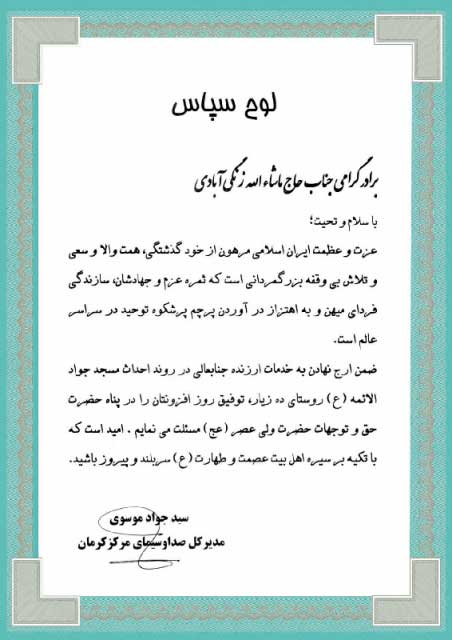 لوح سپاس
برادر گرامی جناب حاج ماشاء الله زنگی آبادی
با سلام و تحیت؛
عزت و عظمت ایران اسلامی مرهون از خود گذشتگی، همت والا و سعی
و تلاش بی وقفه بزرگمردانی است که ثمره عزم و جهادشان، سازندگی
فردای میهن و به اهتزاز در آوردن پرچم پرشکوه توحید در سراسر
عالم است.
ضمن ارج نهادن به خدمات ارزنده جنابعالی در روند احداث مسجد جواد
الائمه (ع) روستای ده زیار، توفیق روز افزونتان را در پناه حضرت
حق و توجهات حضرت ولی عصر (عج) مسئلت می نمایم . امید است که
با تکیه بر سیره اهل بیت عصمت و طهارت (ع) سربلند و پیروز باشید.
سید جواد موسوی
مدیرکل صداوسیمای مرکز کرمان